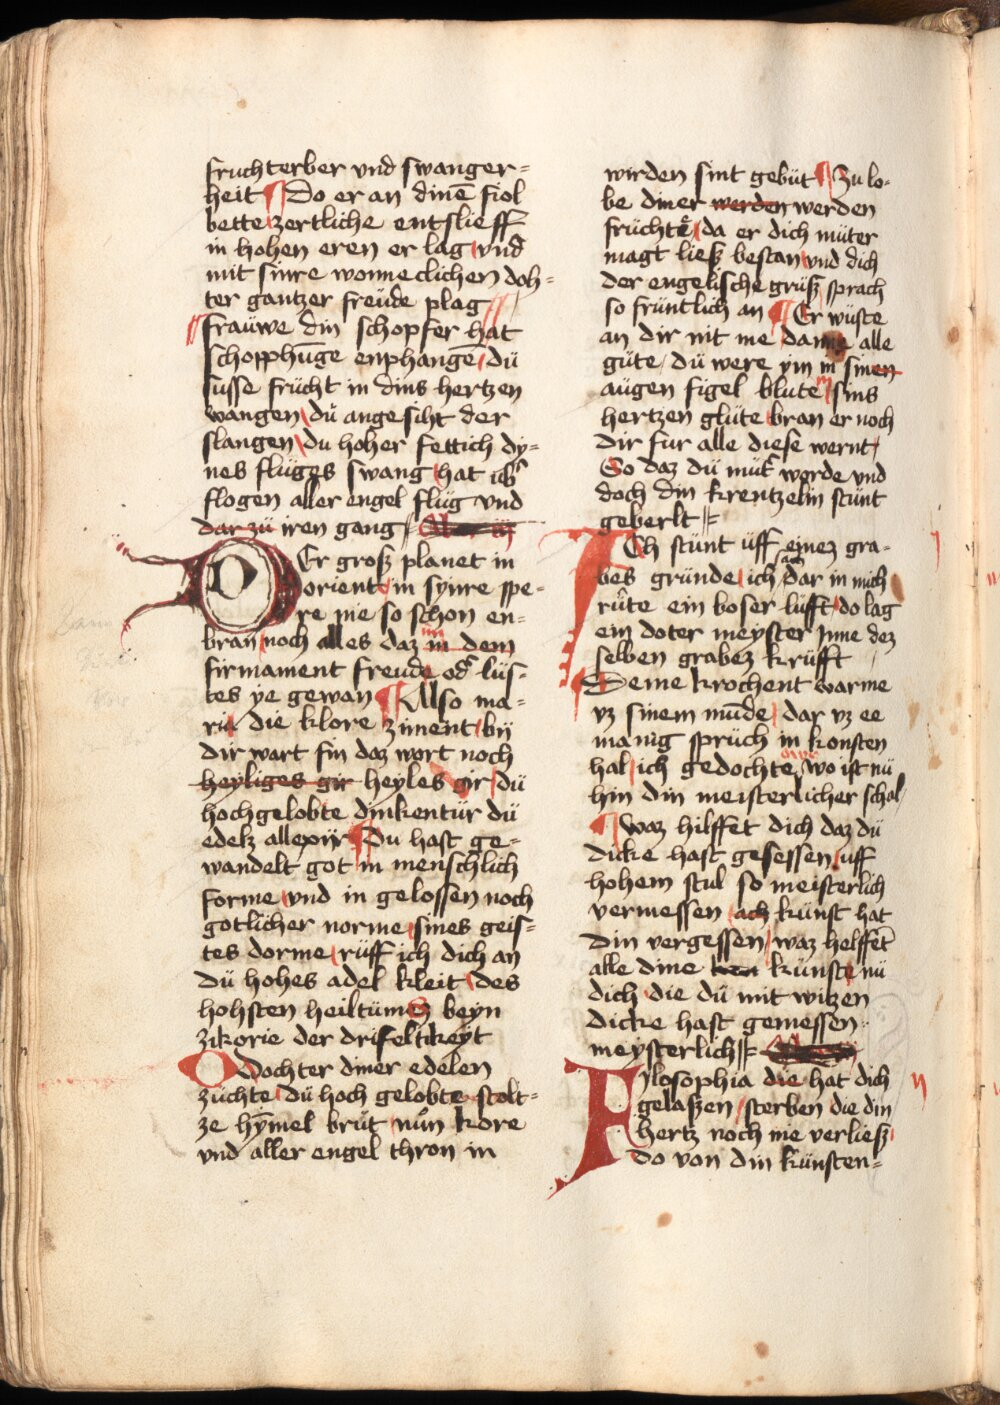 fruchterber vnd swanger=
heit Do er an dinē fiol
bette zertliche entslieff
in hohen eren er lag vnd
mit sinre wonneclichen doh=
ter gantzer freude plag
frauwe din schopfer hat
schopphūge enphangē dü
susse frücht in dins hertzen
wangen dü angesiht der
slangen du hoher fettich dy=
nes fluges swang hat
flogen aller engel flüg vnd
dar zü iren gang
DEr grosz planet in
orient in synre spe=
re nie so schon en=
bran noch alles daz in dem
firmament freude od lüs=
tes ye gewan Also ma=
ria die klore ziment bij
dir wart fin daz wort noch
heyliges gir heyles gir dü
hochgelobte dinkentür dü
edelz allexir Du hast ge=
wandelt got in menschlich
forme vnd in gelossen noch
gotlicher norme sines geis=
tes dorme rüff ich dich an
dü hohes adel kleit des
hohsten heiltüms beyn
zikorie der drifeltikeyt
O Dochter diner edelen
züchte dü hoch gelobte stolt=
ze hÿmel brüt nün kore
vnd aller engel thron in
wirden sint gebüt Zu lo=
be diner werden werden
früchte da er dich müter
magt liesz bestan vnd dich
der engelische grüsz sprach
so früntlich an Er wüste
an dir nit me danne alle
güte dü were ym in sinen
augen figel blute sins
hertzen glüte bran er noch
dir für alle diese wernt
So daz dü müt worde vnd
doch din krentzelin stunt
geberlt
ICh stünt uff einez gra=
bes gründe ich dar in mich
rüte ein boser lüfft do lag
ein doter meyster Inne dez
selben grabez krüfft
Seine krochent warme
vz sinem müde dar vz ee
manig sprüch in konsten
hal ich gedochte wo ist nü
hin din meisterlicher schal
waz hilffet dich daz dü
dicke hast gesessen uff
hohem stul so meisterlich
vermessen ach künst hat
din vergessen waz helffet
alle dine künste nü
dich die dü mit witzen
dicke hast gemessen
meysterlich
Filosophia die hat dich
gelaszen sterben die din
hertz noch nie verliesz
do von din künsten=